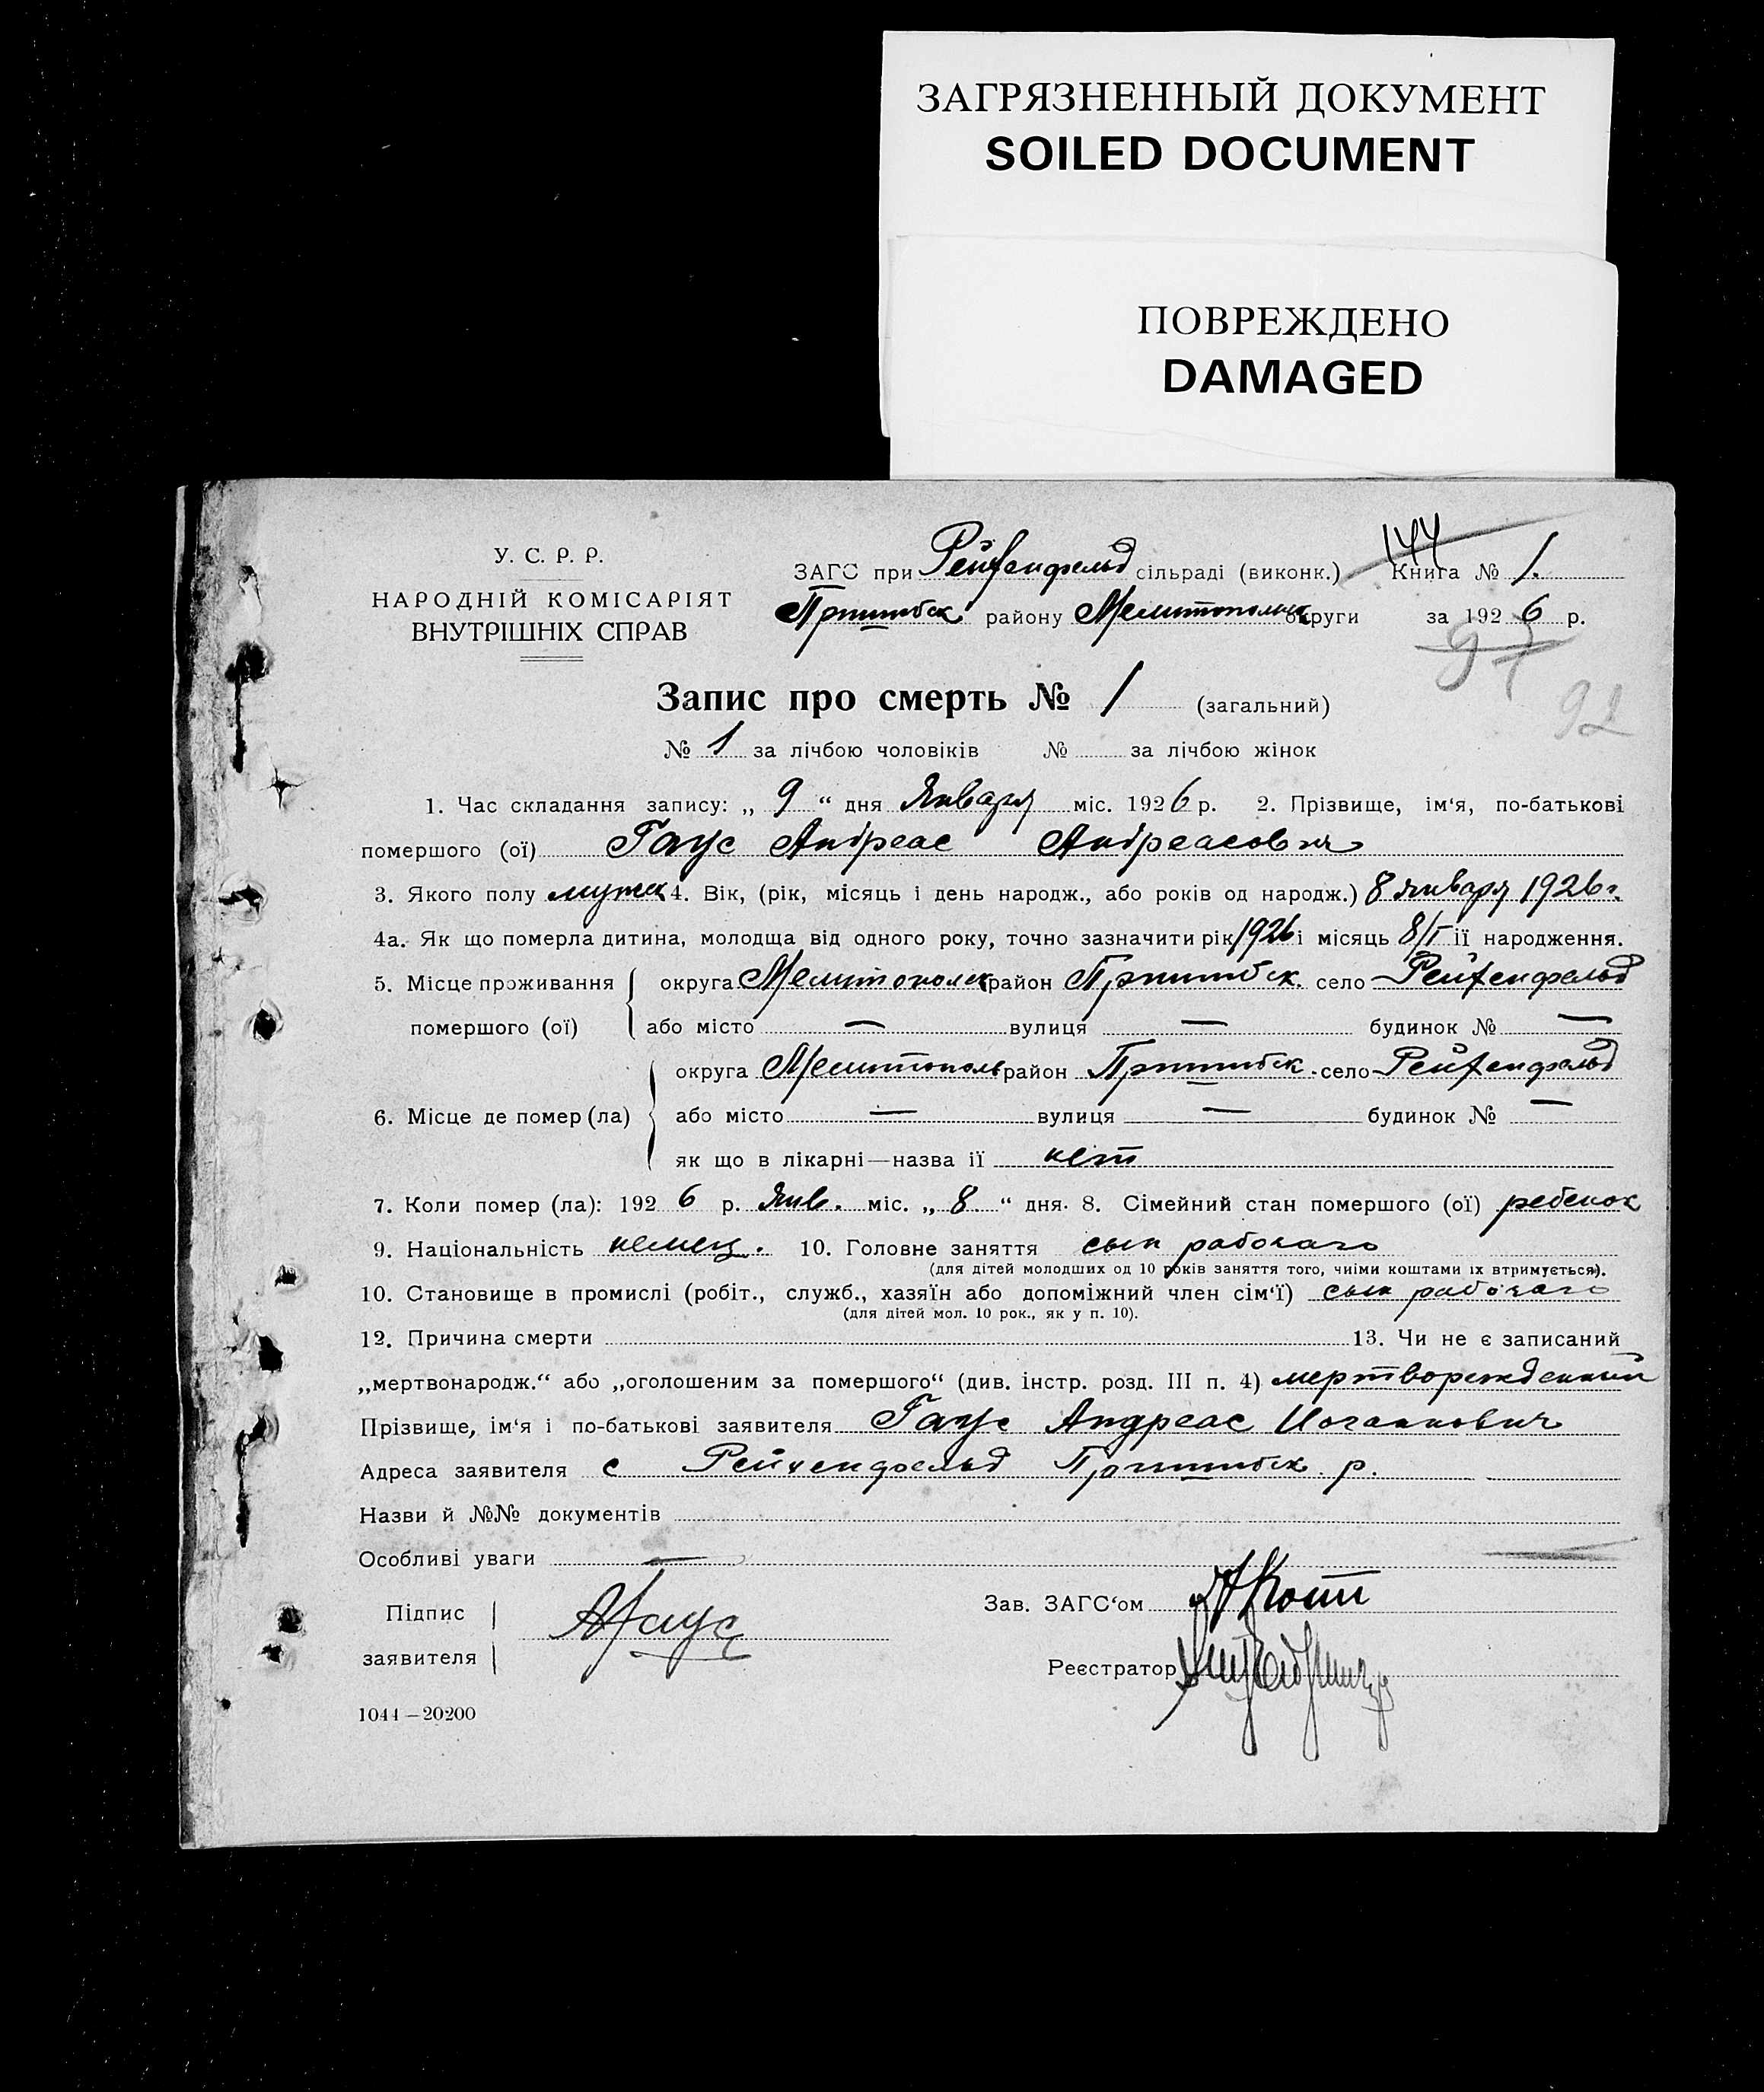 ЗАГРЯЗНЕННЫЙ ДОКУМЕНТ
SOILED DOCUMENT
ПОВРЕЖДЕНО
DAMAGED
144
У. С. Р. Р.
НАРОДНІЙ КОМІСАРІЯТ
ВНУТРІШНІХ СПРАВ
ЗАГС при Рейхенфельд сільраді (виконк.) Книга № 1.
Пришибск району Мелитопольск округи за 1926 р.
92
Запис про смерть № 1 (загальний)
№ 1 за лічбою чоловіків № за лічбою жінок
1. Час складання запису: „ 9 “ дня Января міс. 1926 р. 2. Прізвище, ім‘я, по-батькові
помершого (ої) Гаус Андреас Андреасович
3. Якого полу мужск 4. Вік, (рік, місяць і день народж., або років од народж.) 8 января 1926 г.
4а. Як що померла дитина, молодща від одного року, точно зазначити рік 1926 і місяць 8/I її народження.
5. Місце проживання округа Мелитопольск район Пришибск. село Рейхенфельд
помершого (ої) або місто — вулиця — будинок № —
округа Мелитополь район Пришибск. село Рейхенфельд
6. Місце де помер (ла) або місто — вулиця — будинок № —
як що в лікарні—назва її нет
7. Коли помер (ла): 1926 р. Янв. міс. „ 8 “ дня. 8. Сімейний стан помершого (ої) ребенок
9. Національність немец. 10. Головне заняття сын рабочаго
(для дітей молодших од 10 років заняття того, чиїми коштами їх втримується).
10. Становище в промислі (робіт., служб., хазяїн або допоміжний член сім‘ї) сын рабочаго
(для дітей мол. 10 рок., як у п. 10).
12. Причина смерти 13. Чи не є записаний
„мертвонародж.“ або „оголошеним за помершого“ (див. інстр. розд. III п. 4) мертворожденный
Прізвище, ім‘я і по-батькові заявителя Гаус Андреас Иоганнович
Адреса заявителя с Рейхенфельд Пришибск. р.
Назви й №№ документів
Особливі уваги —
Підпис
заявителя АГаус
Зав. ЗАГС‘ом
Реєстратор
1044—20200